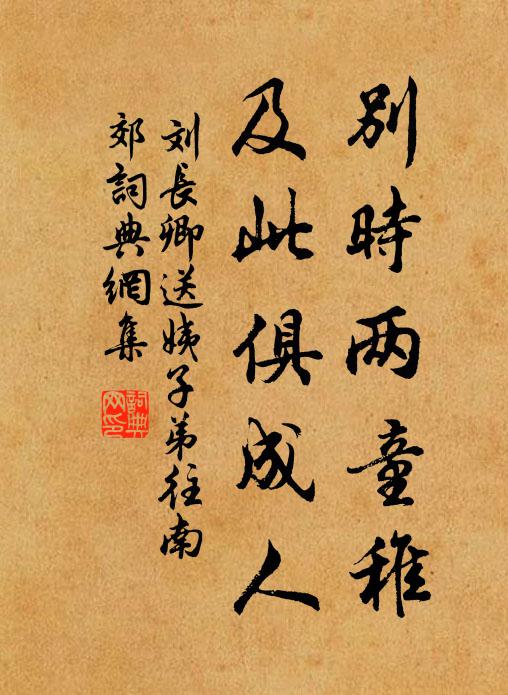 別時两童稚
及此俱成人
刘長卿送姨子弟往南
郊詞典網集
詞典
网印